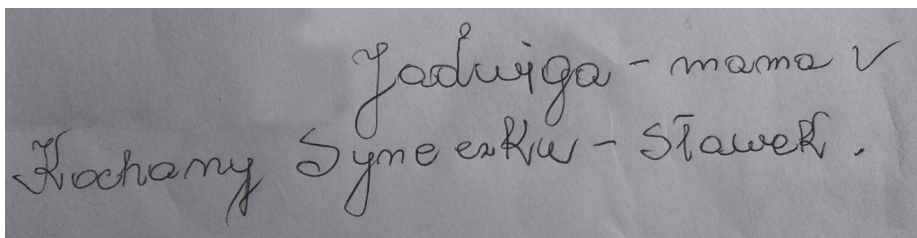 Jadwiga - mama V
Kochany Syneczku - Sławek.